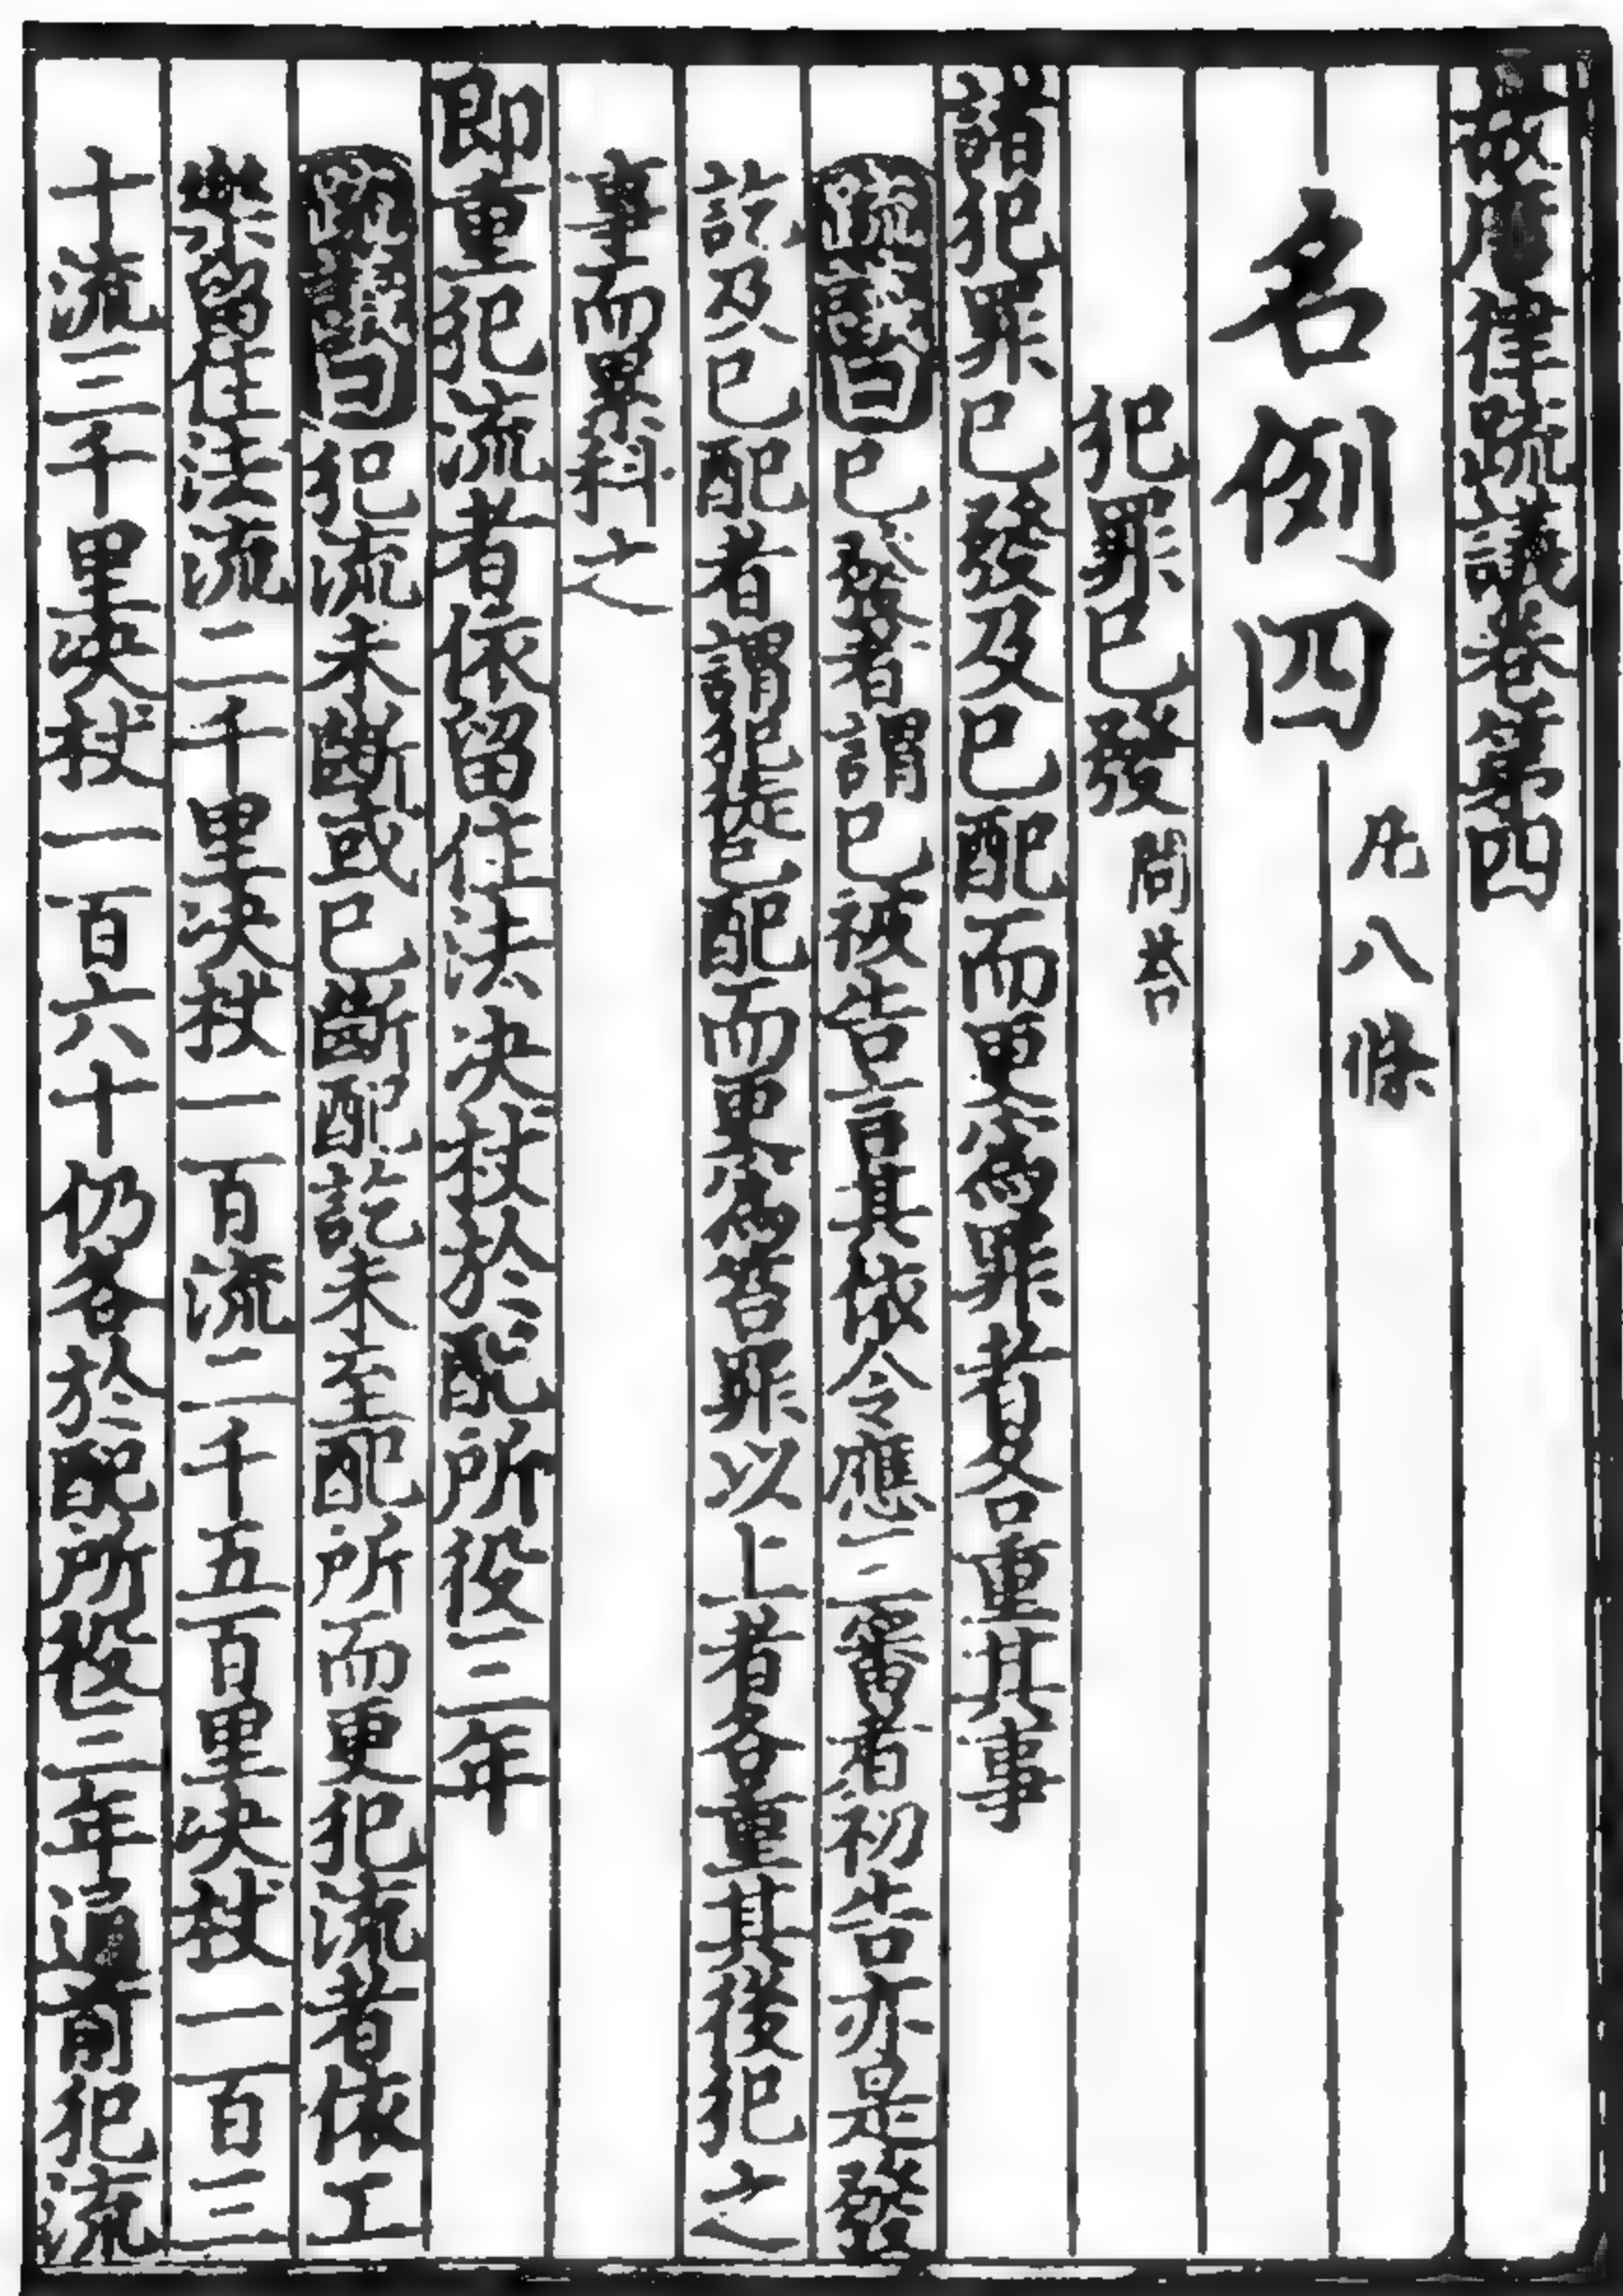 故唐律疏議卷第四
名例四
凡八條
犯罪巳發問荅
諸犯罪巳發及巳配而更爲罪者各重其事
疏議曰巳發者謂巳被告言其依令應三審者初告亦是發
訖及巳配者謂犯徒巳配而更爲笞罪以上者各重其後犯之
事而累科之
即重犯流者依留住法决杖於配所役三年
疏議曰犯流未斷或巳斷配訖未至配所而更犯流者依工
樂留住法流二千里决杖一百流二千五百里决杖一百三
十流三千里决杖一百六十仍各於配所役三年通前犯流